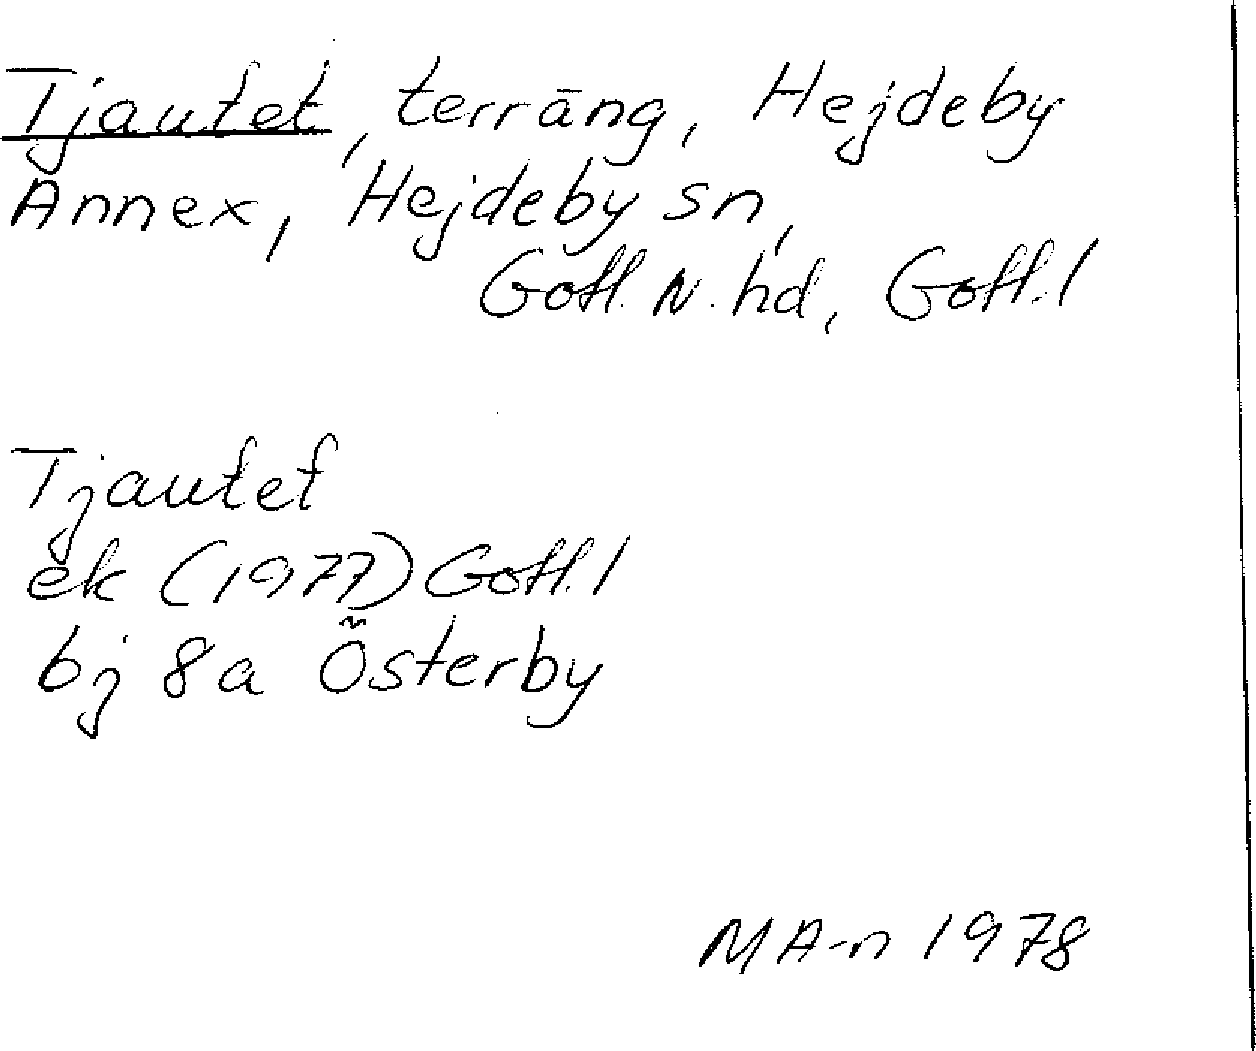 Tjautet, terräng, Hejdeby
Annex, Hejdeby sn,
Gotl. N. hd, Gotl. l
Tjautet
ek (1977) Gotl. l
bj 8a Österby
MA-n 1978